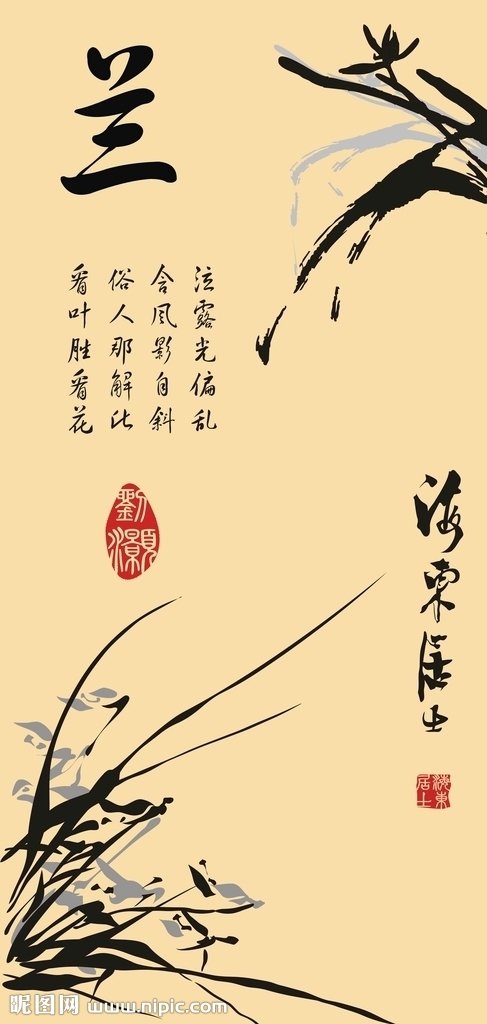 兰
泣露光偏乱
含风影自斜
俗人那解此
看叶胜看花
劉灝
海東居士
海東居士
昵图网 www.nipic.com